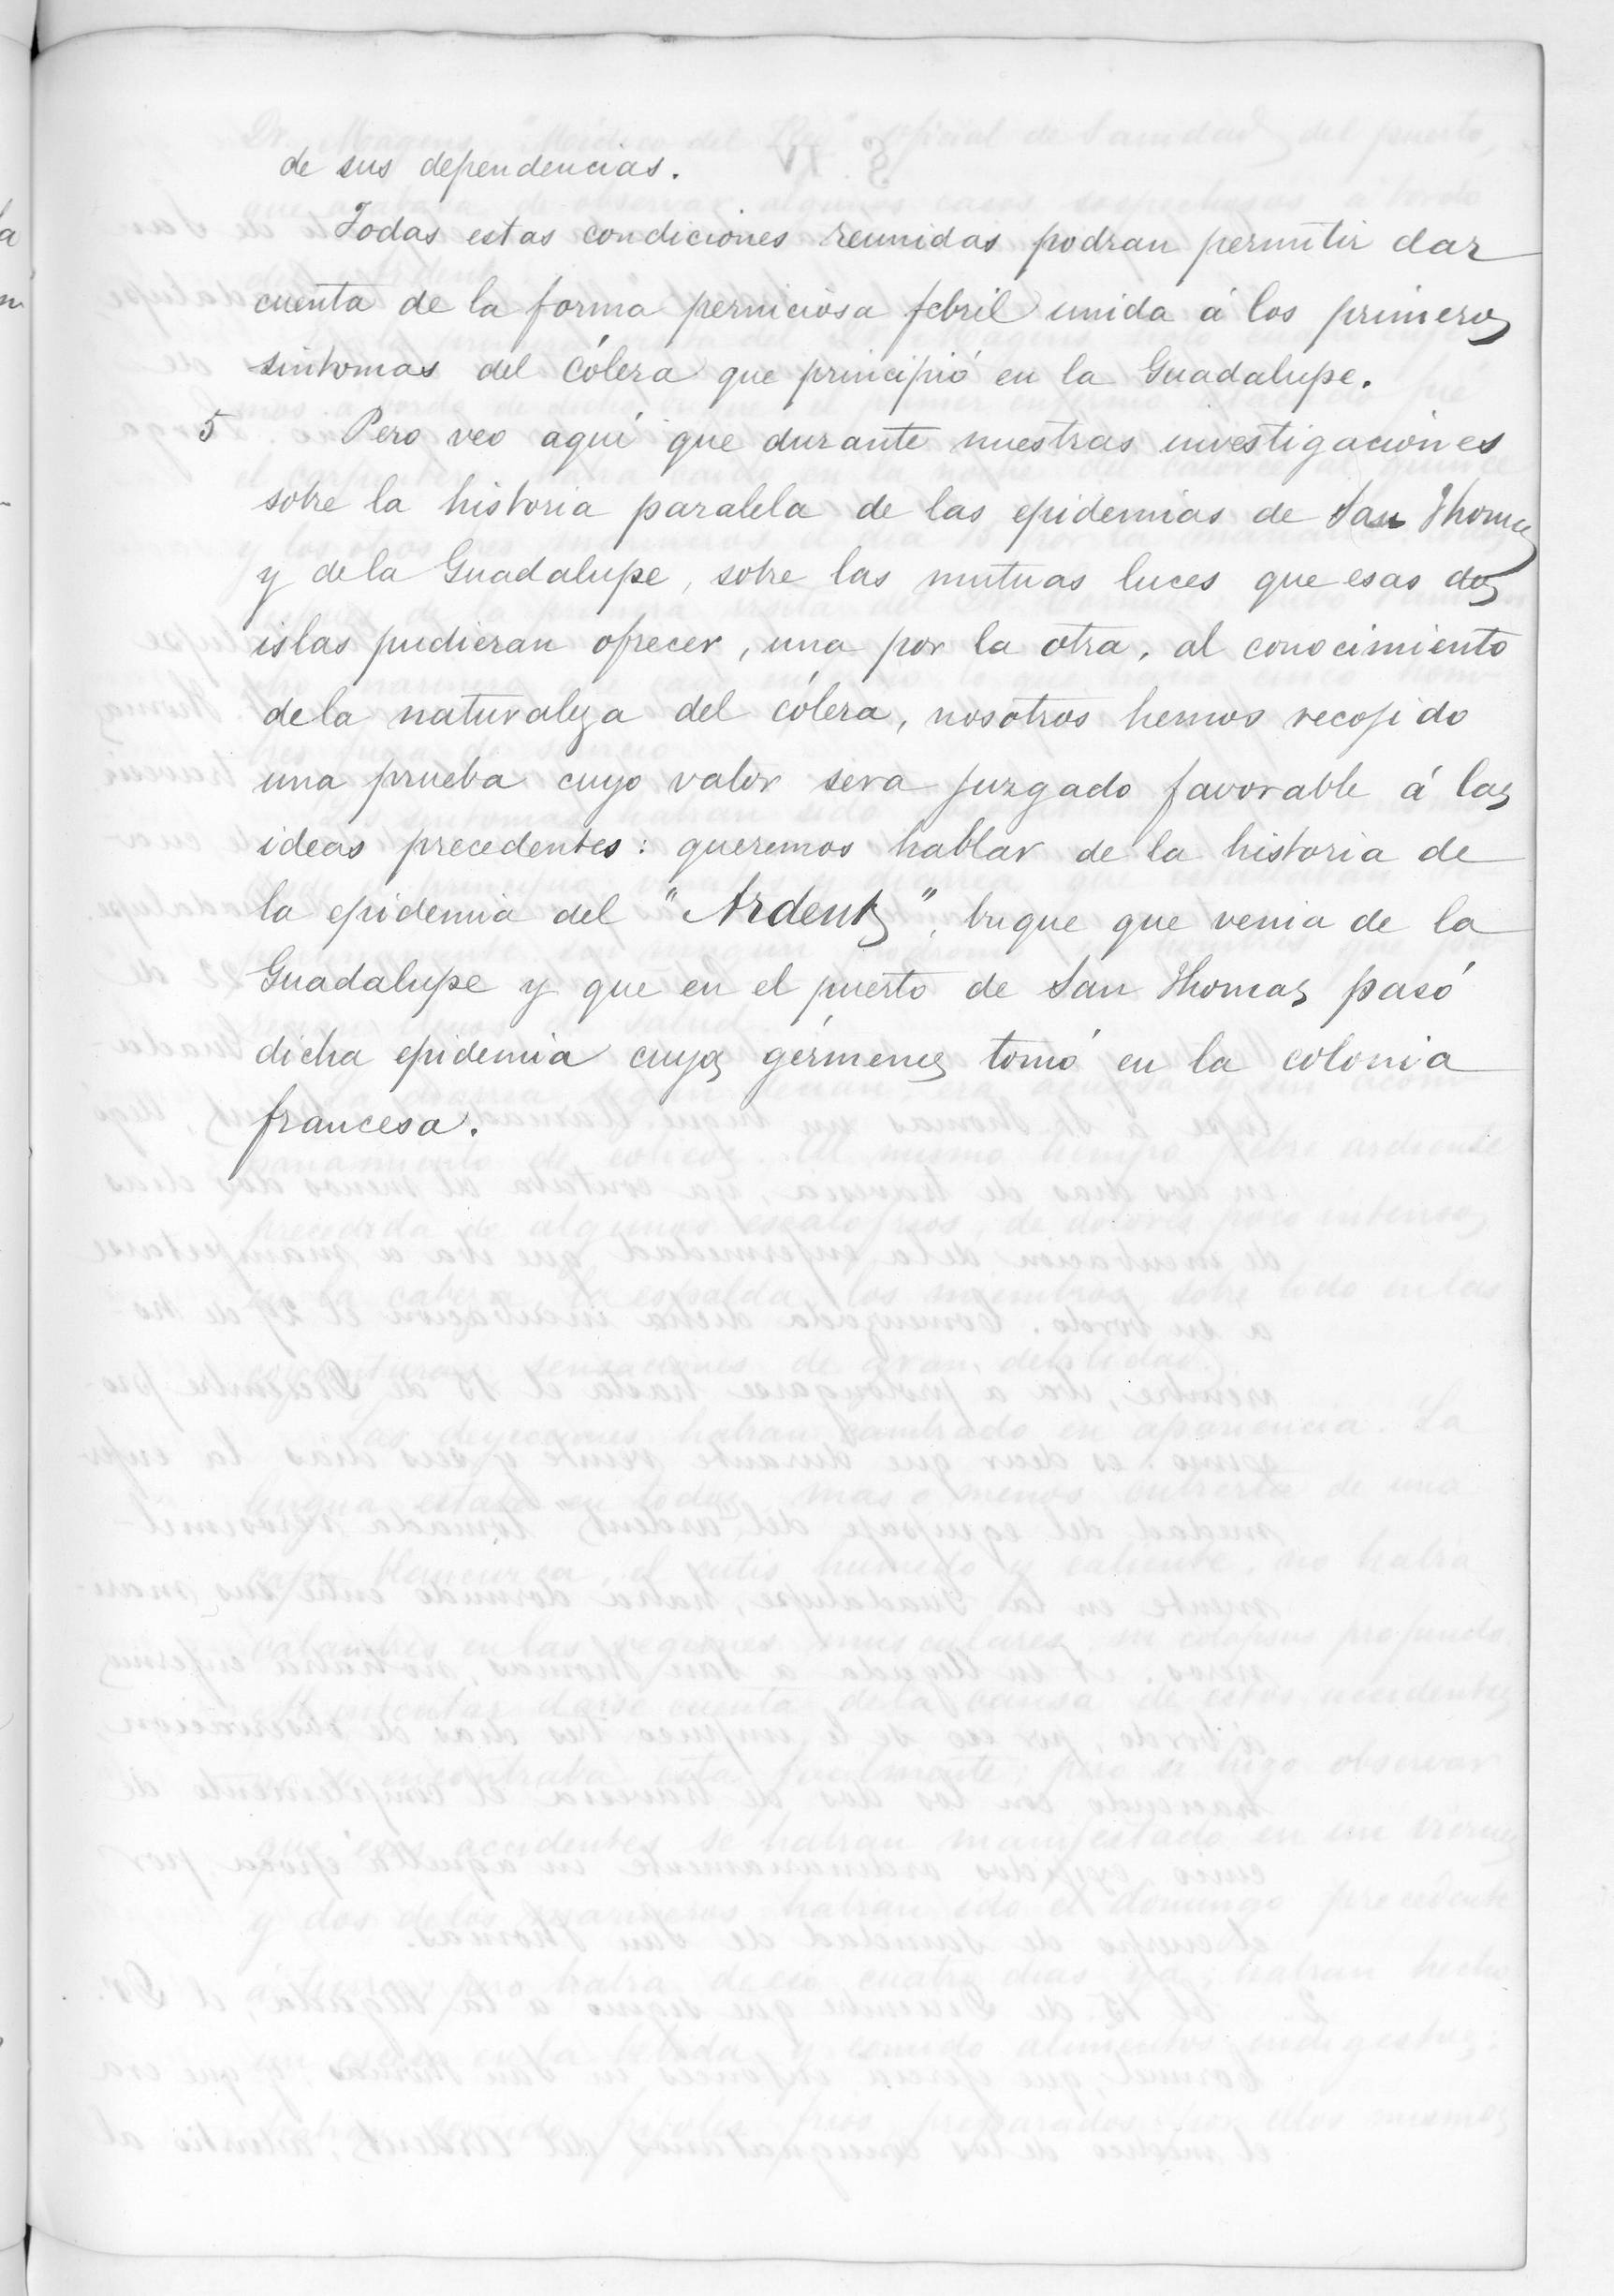 de sus dependencias.
Todas estas condiciones reunidas podran permitir dar
cuenta de la forma perniciosa febril unida á los primeros
síntomas del cólera que principió en la Guadalupe.
5 Pero veo aquí que durante nuestras investigaciones
sobre la historia paralela de las epidemias de San Thomas
y dela Guadalupe, sobre las mutuas luces que esas dos
islas pudieran ofrecer, una por la otra, al conocimiento
dela naturaleza del cólera, nosotros hemos recojido
una prueba cuyo valor sera juzgado favorable á las
ideas precedentes: queremos hablar de la historia de
la epidemia del "Ardent", buque que venia de la
Guadalupe y que en el puerto de San Thomas pasó
dicha epidemia cuyos gérmenes tomó en la colonia
francesa.